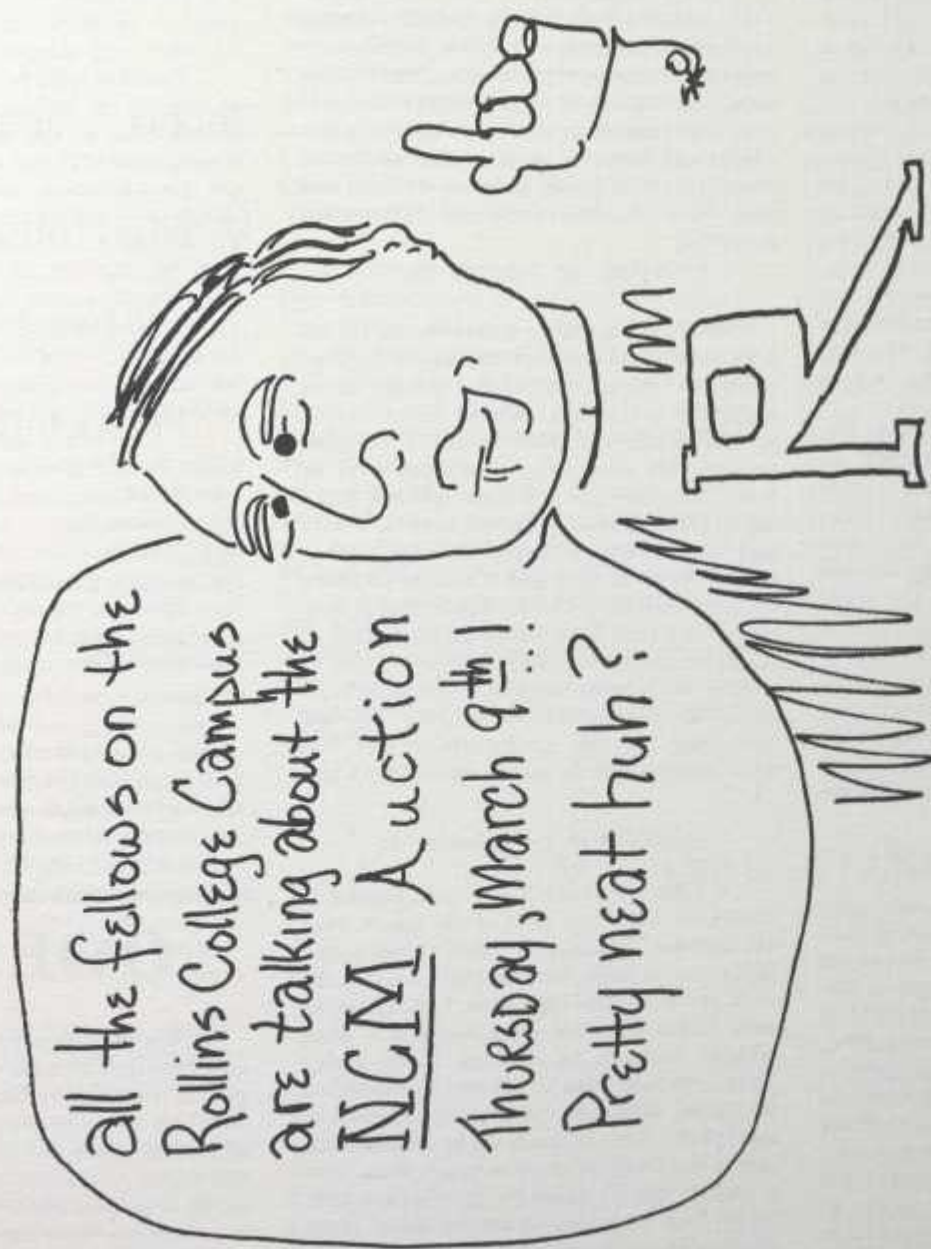 all the fellows on the
Rollins College Campus
are talking about the
NCM Auction
Thursday, March 9th!..
Pretty neat huh?
R